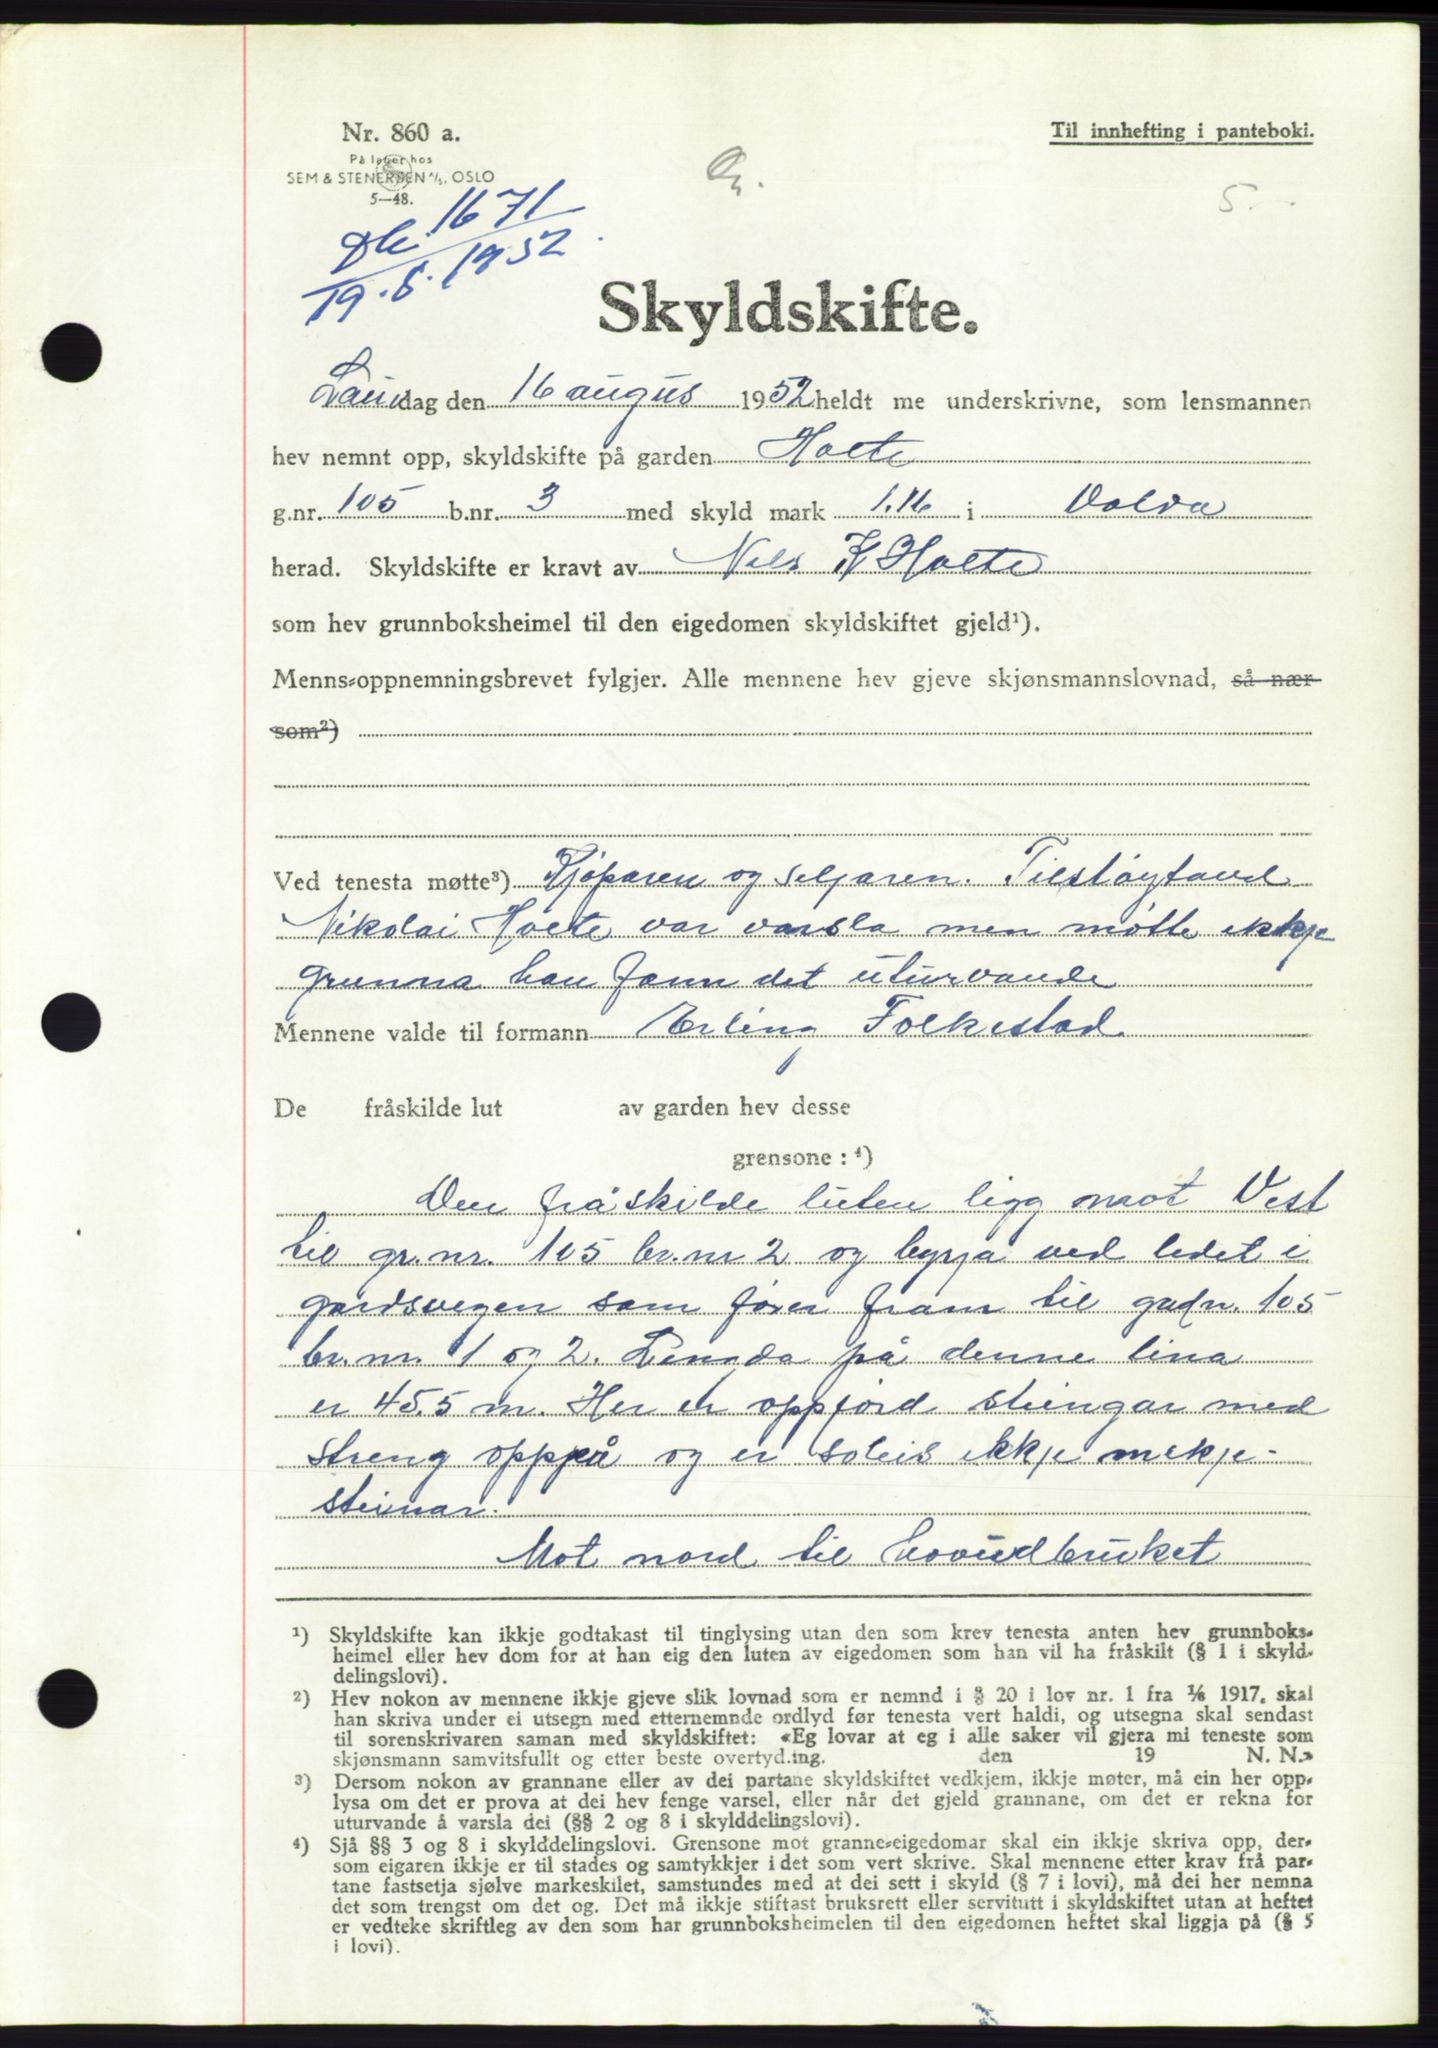 Nr. 860 a.
På lager hos
SEM & STENERSEN A/S, OSLO
5—48.
Til innhefting i panteboki.
5
Db. 1671
19.8.1952
Skyldskifte.
Laurdag den 16 augus 1952 heldt me underskrivne, som lensmannen
hev nemnt opp, skyldskifte på garden Holte
g.nr. 105 b.nr. 3 med skyld mark 1.16 i Volda
herad. Skyldskifte er kravt av Nils K Holte
som hev grunnboksheimel til den eigedomen skyldskiftet gjeld¹).
Menns-oppnemningsbrevet fylgjer. Alle mennene hev gjeve skjønsmannslovnad, så nær
som²)
Ved tenesta møtte³) Kjøparen og seljaren. Tilstøytand
Nikolai Holte var varsla men møtte ikkje
grunna han fann det uturvande
Mennene valde til formann Erling Folkestad
De fråskilde lut av garden hev desse
grensone : ⁴)
Den fråskilde luten ligg mot Vest
til gr.nr. 105 br.nr 2 og byrja ved ledet i
gardsvegen som fører fram til gardn. 105
br.nr. 1 og 2. Lengda på denne lina
er 45,5 m. Her er oppjord steingar med
streng oppå og er soleis ikkje merkje-
steinar.
Mot nord til hovudbruket
¹) Skyldskifte kan ikkje godtakast til tinglysing utan den som krev tenesta anten hev grunnboks-
heimel eller hev dom for at han eig den luten av eigedomen som han vil ha fråskilt (§ 1 i skyld-
delingslovi).
²) Hev nokon av mennene ikkje gjeve slik lovnad som er nemnd i § 20 i lov nr. 1 fra ⅙ 1917, skal
han skriva under ei utsegn med etternemnde ordlyd før tenesta vert haldi, og utsegna skal sendast
til sorenskrivaren saman med skyldskiftet: «Eg lovar at eg i alle saker vil gjera mi teneste som
skjønsmann samvitsfullt og etter beste overtyding. den 19 N. N.»
³) Dersom nokon av grannane eller av dei partane skyldskiftet vedkjem, ikkje møter, må ein her opp-
lysa om det er prova at dei hev fenge varsel, eller når det gjeld grannane, om det er rekna for
uturvande å varsla dei (§§ 2 og 8 i skylddelingslovi).
⁴) Sjå §§ 3 og 8 i skylddelingslovi. Grensone mot granne-eigedomar skal ein ikkje skriva opp, der-
som eigaren ikkje er til stades og samtykkjer i det som vert skrive. Skal mennene etter krav frå par-
tane fastsetja sjølve markeskilet, samstundes med at dei sett i skyld (§ 7 i lovi), må dei her nemna
det som trengst om det og. Det må ikkje stiftast bruksrett eller servitutt i skyldskiftet utan at heftet
er vedteke skriftleg av den som har grunnboksheimelen til den eigedomen heftet skal liggja på (§ 5
i lovi).